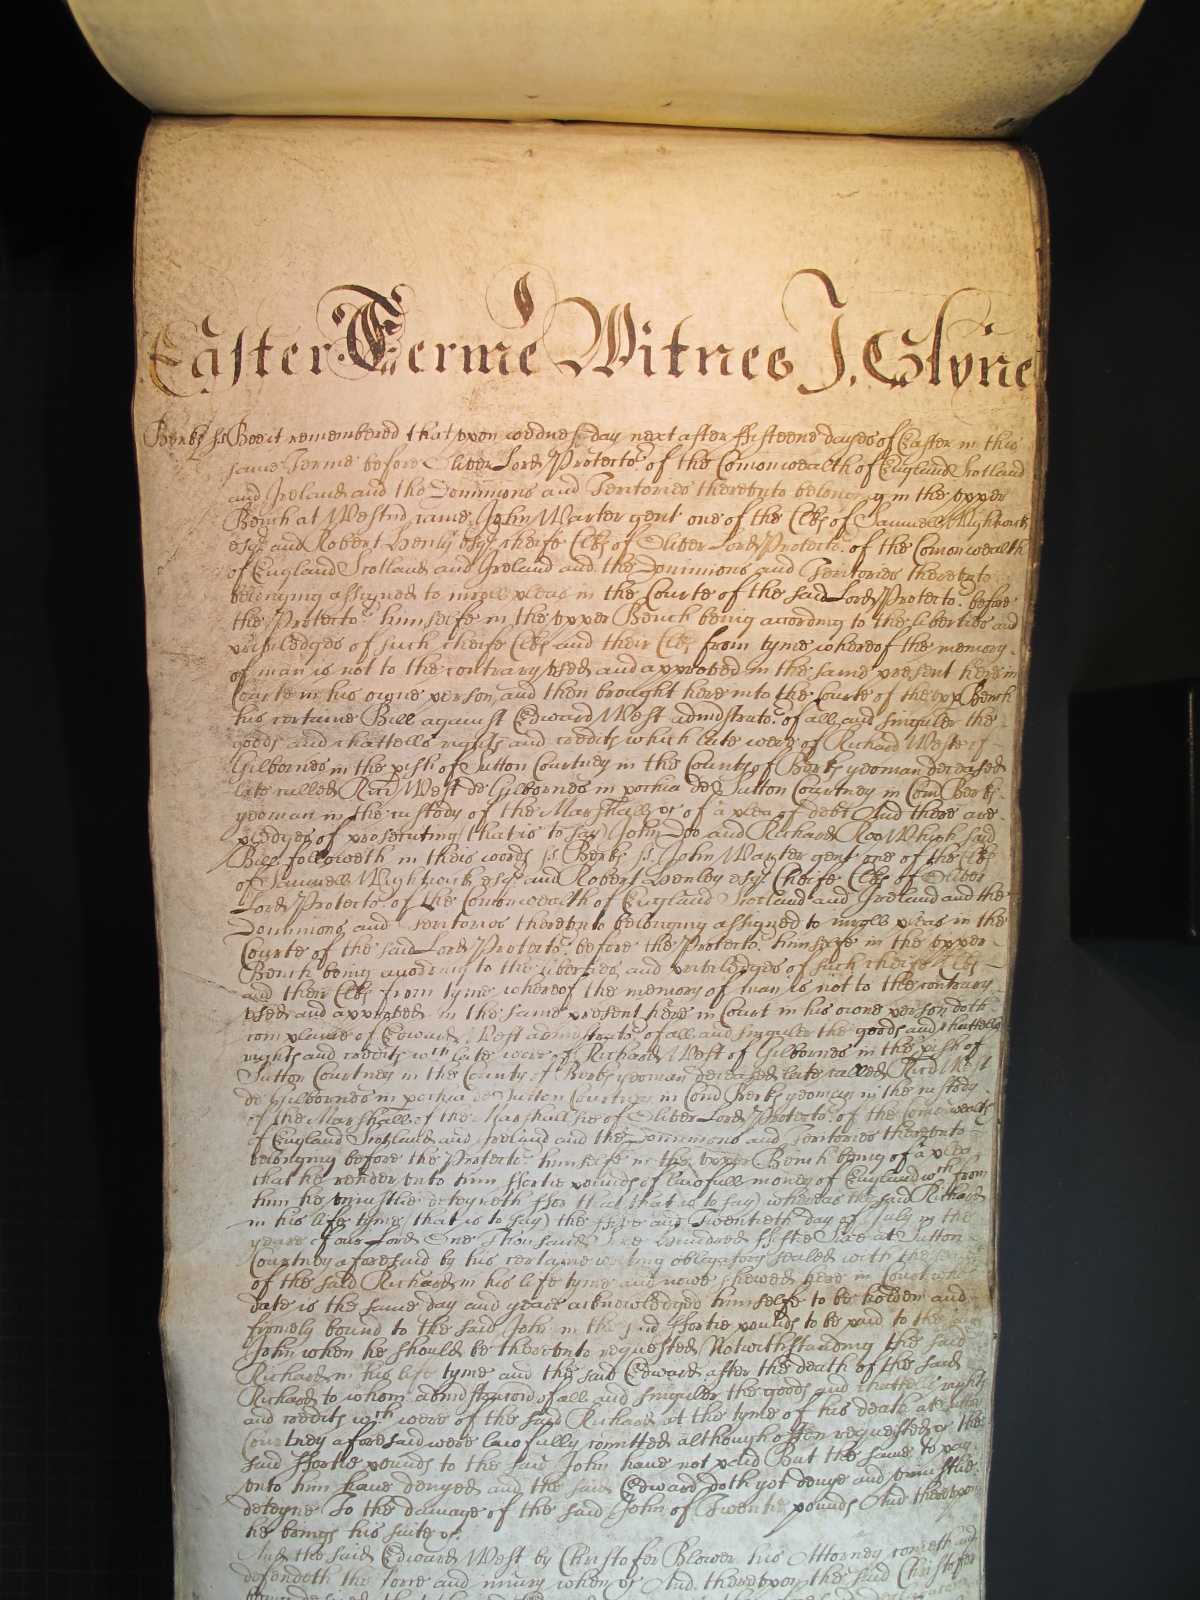 Easter Terme Witnes J. Glyne
Berks ss Bee it remembered that upon wednesday next after ffifteene dayes of Easter in this
same Terme before Oliver Lord Protecto.r of the Comonwealth of England Scotland
and Ireland and the Dominions and Territories thereunto belonging in the upper
Bench at Westm came John Warter gent one of the Clks of Samuell Wightwick
esq.r and Robert Henly esq.r cheife Clks of Oliver Lord Protecto.r of the Comonwealth
of England Scotland and Ireland and the Dominions and Territories thereunto
belonging assigned to inroll pleas in the Courte of the said Lord Protecto.r before
the Protecto.r himselfe in the upper Bench being according to the liberties and
priviledges of such cheife Clks and their Clks from tyme whereof the memory
of man is not to the contrary used and approved in the same present here in
Courte in his owne person and then brought here into the Courte of the upp Bench
his certaine Bill against Edward West admstrato.r of all and singuler the
goods and chattells rights and credits which late were of Richard Weste of
Gilbornes in the pish of Sutton Courtney in the County of Berks yeoman deceased
late called Ricd West de Gilbornes in pochia de Sutton Courtney in Com Berks
yeoman in the custody of the Marshall &c of a plea of debt And there are
pledges of prosecuting (that is to say) John Doo and Richard Roo Which said
Bill followeth in theis words ss. Berks ss. John Warter gent one of the Clks
of Samuell Wightwick esq.r and Robert Henley esq.r Cheife Clks of Oliver
Lord Protecto.r of the Comonwealth of England Scotland and Ireland and the
Dominions and Territories thereunto belonging assigned to inroll pleas in the
Courte of the said Lord Protecto.r before the Protecto.r himselfe in the upper
Bench being according to the liberties and priviledges of such cheife Clks
and their Clks from tyme whereof the memory of man is not to the contrary
used and approved in the same present here in Court in his owne person doth
complaine of Edward West admstrato.r of all and singuler the goods and chattells
rights and credits wch late were of Richard West of Gilbornes in the pish of
Sutton Courtney in the County of Berks yeoman deceased late called Ricd West
de Gilbornes in pochia de Sutton Courtney in Com Berks yeoman in the custody
of the Marshall of the Marshallsie of Oliver Lord Protecto.r of the Comonwealth
of England Scotland and Ireland and the Dominions and Territories thereunto
belonging before the Protecto.r himselfe in the upper Bench being of a plea
that he render unto him ffortie pounds of lawfull money of England wch from
him he uniustlie deteyneth ffor that (that is to say) whereas the said Richard
in his life tyme (that is to say) the ffive and Twentieth day of July in the
yeare of our Lord One Thousand Six Hundred ffiftie Sixe at Sutton
Courtney aforesaid by his certaine writing obligatory sealed with the seale
of the said Richard in his life tyme and nowe shewed here in Court whose
date is the same day and yeare acknowledged himselfe to be holden and
firmely bound to the said John in the said ffortie pounds to be paid to the said
John when he should be thereunto requested Notwithstanding the said
Richard in his life tyme and the said Edward after the death of the said
Richard to whom admstracon of all and singuler the goods and chattells rights
and credits wch were of the said Richard at the tyme of his death at Sutton
Courtney aforesaid were lawfully comitted although often requested &c the
said ffortie pounds to the said John have not paid But the same to pay
unto him have denyed and the said Edward doth yet denye and uniustlie
deteyne To the damage of the said John of Twentie pounds And thereupon
he brings his suite &c.
And the said Edward West by Christofer Blower his Attorney cometh and
defendeth the force and iniury when &c And thereupon the said Christofer